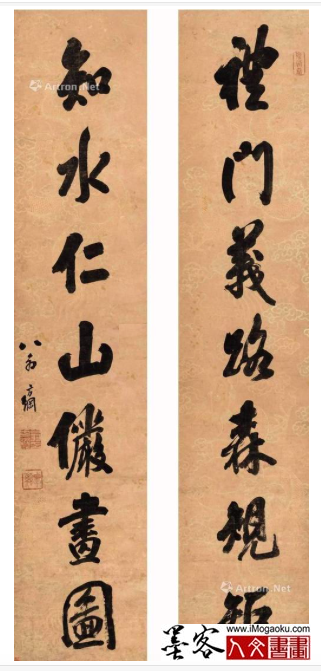 禮門義路森規矩
知水仁山儼畫圖
Artron.Net
Artron.Net
www.iMogaoku.com
墨客